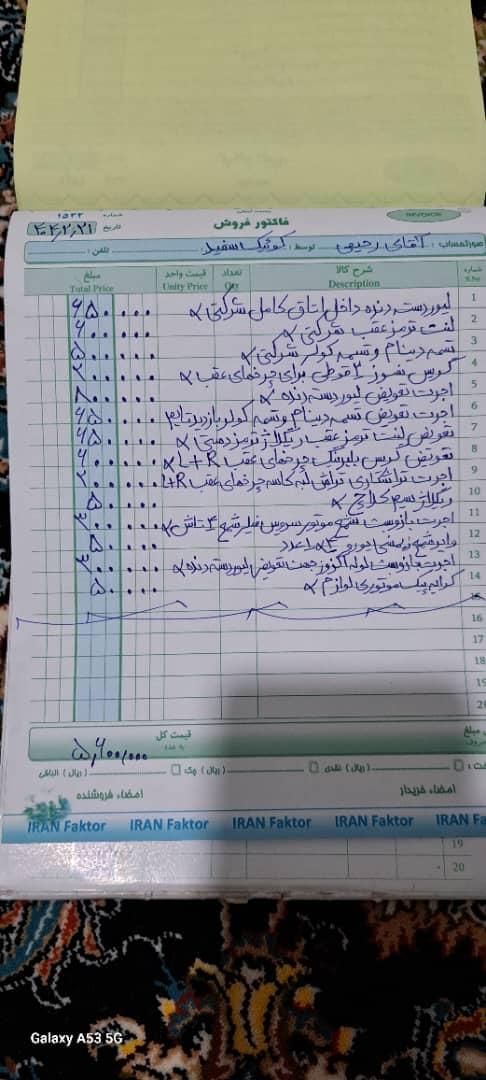 INVOICE
شماره ۱۵۲۲
فاکتور فروش
تاریخ ۴۰۴,۲,۲۱
صورتحساب : آقای رحیمی توسط : کوئیک سفید تلفن :
شماره S.No شرح کالا Description تعداد Qty قیمت واحد Unity Price مبلغ Total Price
1 لیور دسته دنده داخل اتاق کامل شرکتی ۶۵۰۰۰۰
2 لنت ترمز عقب شرکتی ۶۰۰۰۰۰
3 تسمه دینام و تسمه کولر شرکتی ۵۰۰۰۰۰
4 گریس نسوز ۲ قوطی برای چرخهای عقب ۲۰۰۰۰۰
5 اجرت تعویض لیور دسته دنده ۸۰۰۰۰۰
6 اجرت تعویض تسمه دینام و تسمه کولر بازدید تایم ۶۵۰۰۰۰
7 تعویض لنت ترمز عقب رگلاژ ترمز دستی ۴۵۰۰۰۰
8 تعویض گریس بلبرینگ چرخهای عقب L+R ۶۰۰۰۰۰
9 اجرت تراشکاری تراش لبه کاسه چرخهای عقب L+R ۲۰۰۰۰۰
10 رگلاژ سیم کلاچ ۵۰۰۰۰
11 اجرت بازوبست شمع موتور سرویس فیلر شمع ۴ تاش ۳۰۰۰۰۰
12 عدد ۵۰۰۰۰
13 اجرت بازوبست لوله اگزوز جهت تعویض لیور دسته دنده ۳۰۰۰۰۰
14 کرایه پیک موتوری لوازم ۵۰۰۰۰
15
16
17
18
19
20
مبلغ قیمت کل ۵,۴۰۰,۰۰۰
(ریال) نقدی (ریال) چک (ریال) الباقی
امضاء خریدار امضاء فروشنده
IRAN Faktor IRAN Faktor IRAN Faktor IRAN Faktor IRAN Fa
19
20
Galaxy A53 5G